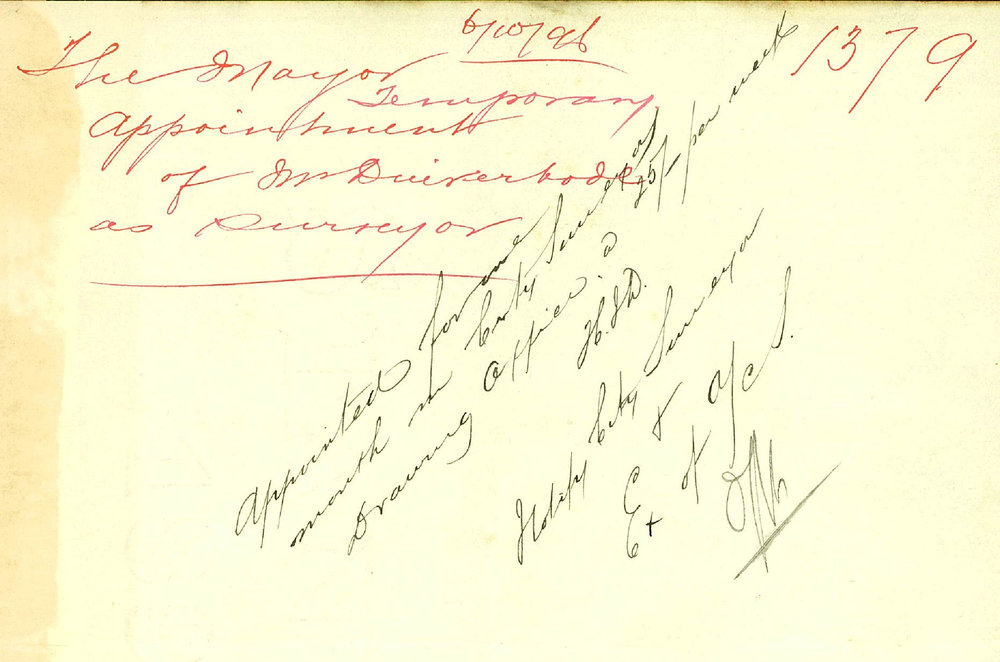 6/10/96
1379
The Mayor
Temporary
Appointment
of Mr Duikerbode
as Surveyor
Appointed for one
month in City Surveyors
Drawing Office a 25/- per week
H.
Notify City Surveyor
E. & A/c S.
Ex of